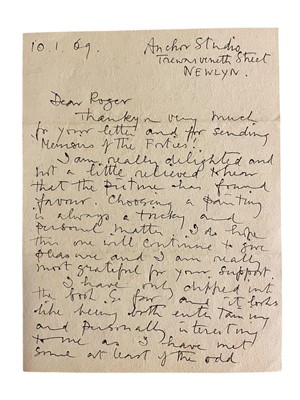 10.1.69. Anchor Studio
Trewarveneth Street
NEWLYN.
Dear Roger
Thankyou very much
for your letter and for sending
'Memoirs of the Forties'.
I am really delighted and
not a little relieved to hear
that the picture has found
favour. Choosing a painting
is always a tricky and
personal matter. I do hope
this one will continue to give
pleasure and I am really
most grateful for your support.
I have only dipped into
the book so far and it looks
like being both entertaining
and personally interesting
to me as I have met
some at least of the odd